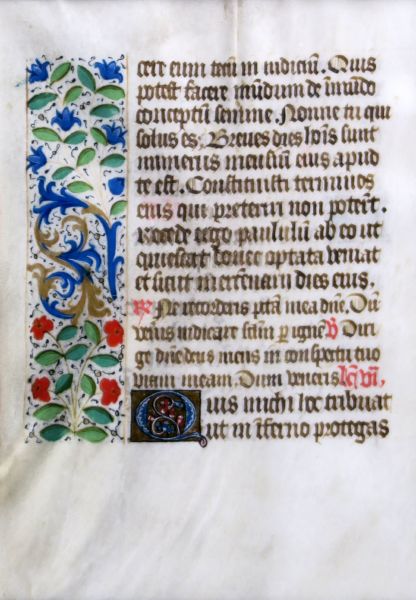 cere eum tecū in iudiciū. Quis
potest facere mūdum de īmūdo
conceptū semine. Nonne tu qui
solus es. Breues dies hoīs sunt
numerus mensiū eius apud
te est. Constituisti terminos
eius qui preteriri non poterūt.
Recede ergo paululū ab eo ut
quiescat donec optata ueniat
et sicut mercenarii dies eius.
℟ Ne recorderis pctā mea dn̄e. Dū
veneris iudicare sclm̄ p ignē ℣ Diri
ge dn̄e deus meus in conspectu tuo
viam meam. Dum veneris lc̄ vi.
Quis michi hoc tribuat
ut in īferno protegas